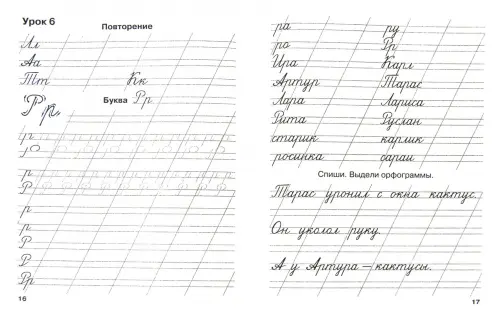 Урок 6
Повторение
Лл
Аа
Тт Кк
Буква Рр
Рр
р
р
р
Р
р
р
Р
Р
Рр
16
ра ру
ро Рр
Ира Карл
Артур Тарас
Лара Лариса
Рита Руслан
старик карлик
росинка сараи
Спиши. Выдели орфограммы.
Тарас уронил с окна кактус.
Он уколол руку.
А у Артура — кактусы.
17